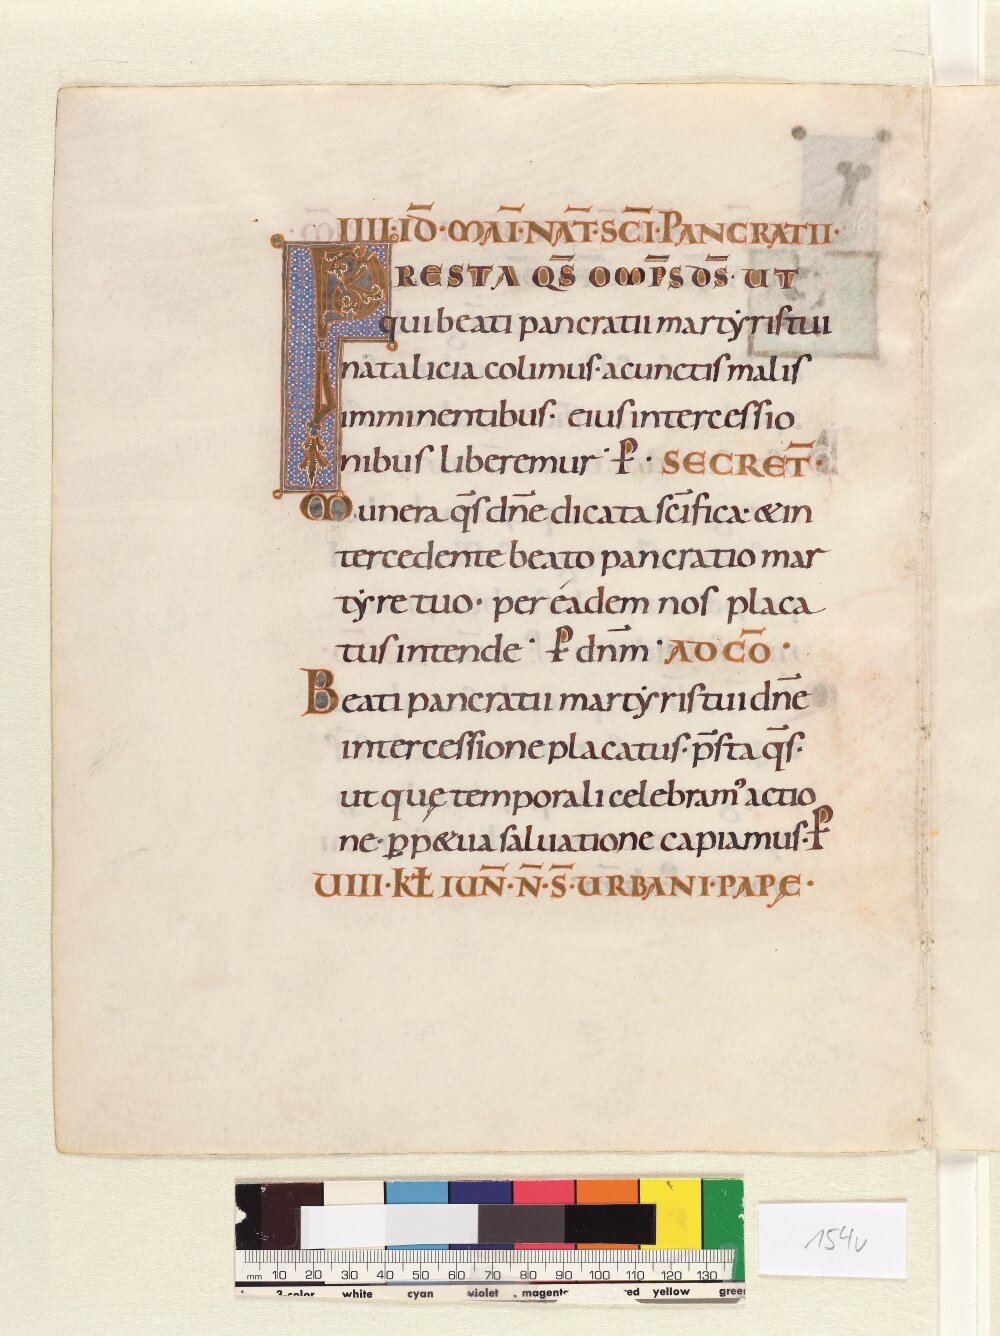 IIII·ID̄·MAĪ·NAT̄·SC̄I·PANCRATII·
PRESTA QS̄ OMP̄S DS̄· UT
qui beati pancratii martẏris tui
natalicia colimus· a cunctis malis
imminentibus· eius intercessio
nibus liberemur· P̄· SECRET̄·
Munera q̄s dn̄e dicata sc̄ifica· & in
tercedente beato pancratio mar
tẏre tuo· per éadem nos placa
tus intende· P̄ dn̄m· AD CŌ·
Beati pancratii martẏris tui dn̄e
intercessione placatus· p̄sta q̄s·
ut quę temporali celebram᾿ actio
ne· ꝑp&ua saluatione capiamus· P̄
UIII·KL̄ IUN̄·N̄·S̄·URBANI·PAPĘ·
154v
mm 10 20 30 40 50 60 70 80 90 100 110 120 130
3-color white cyan violet magent red yellow green